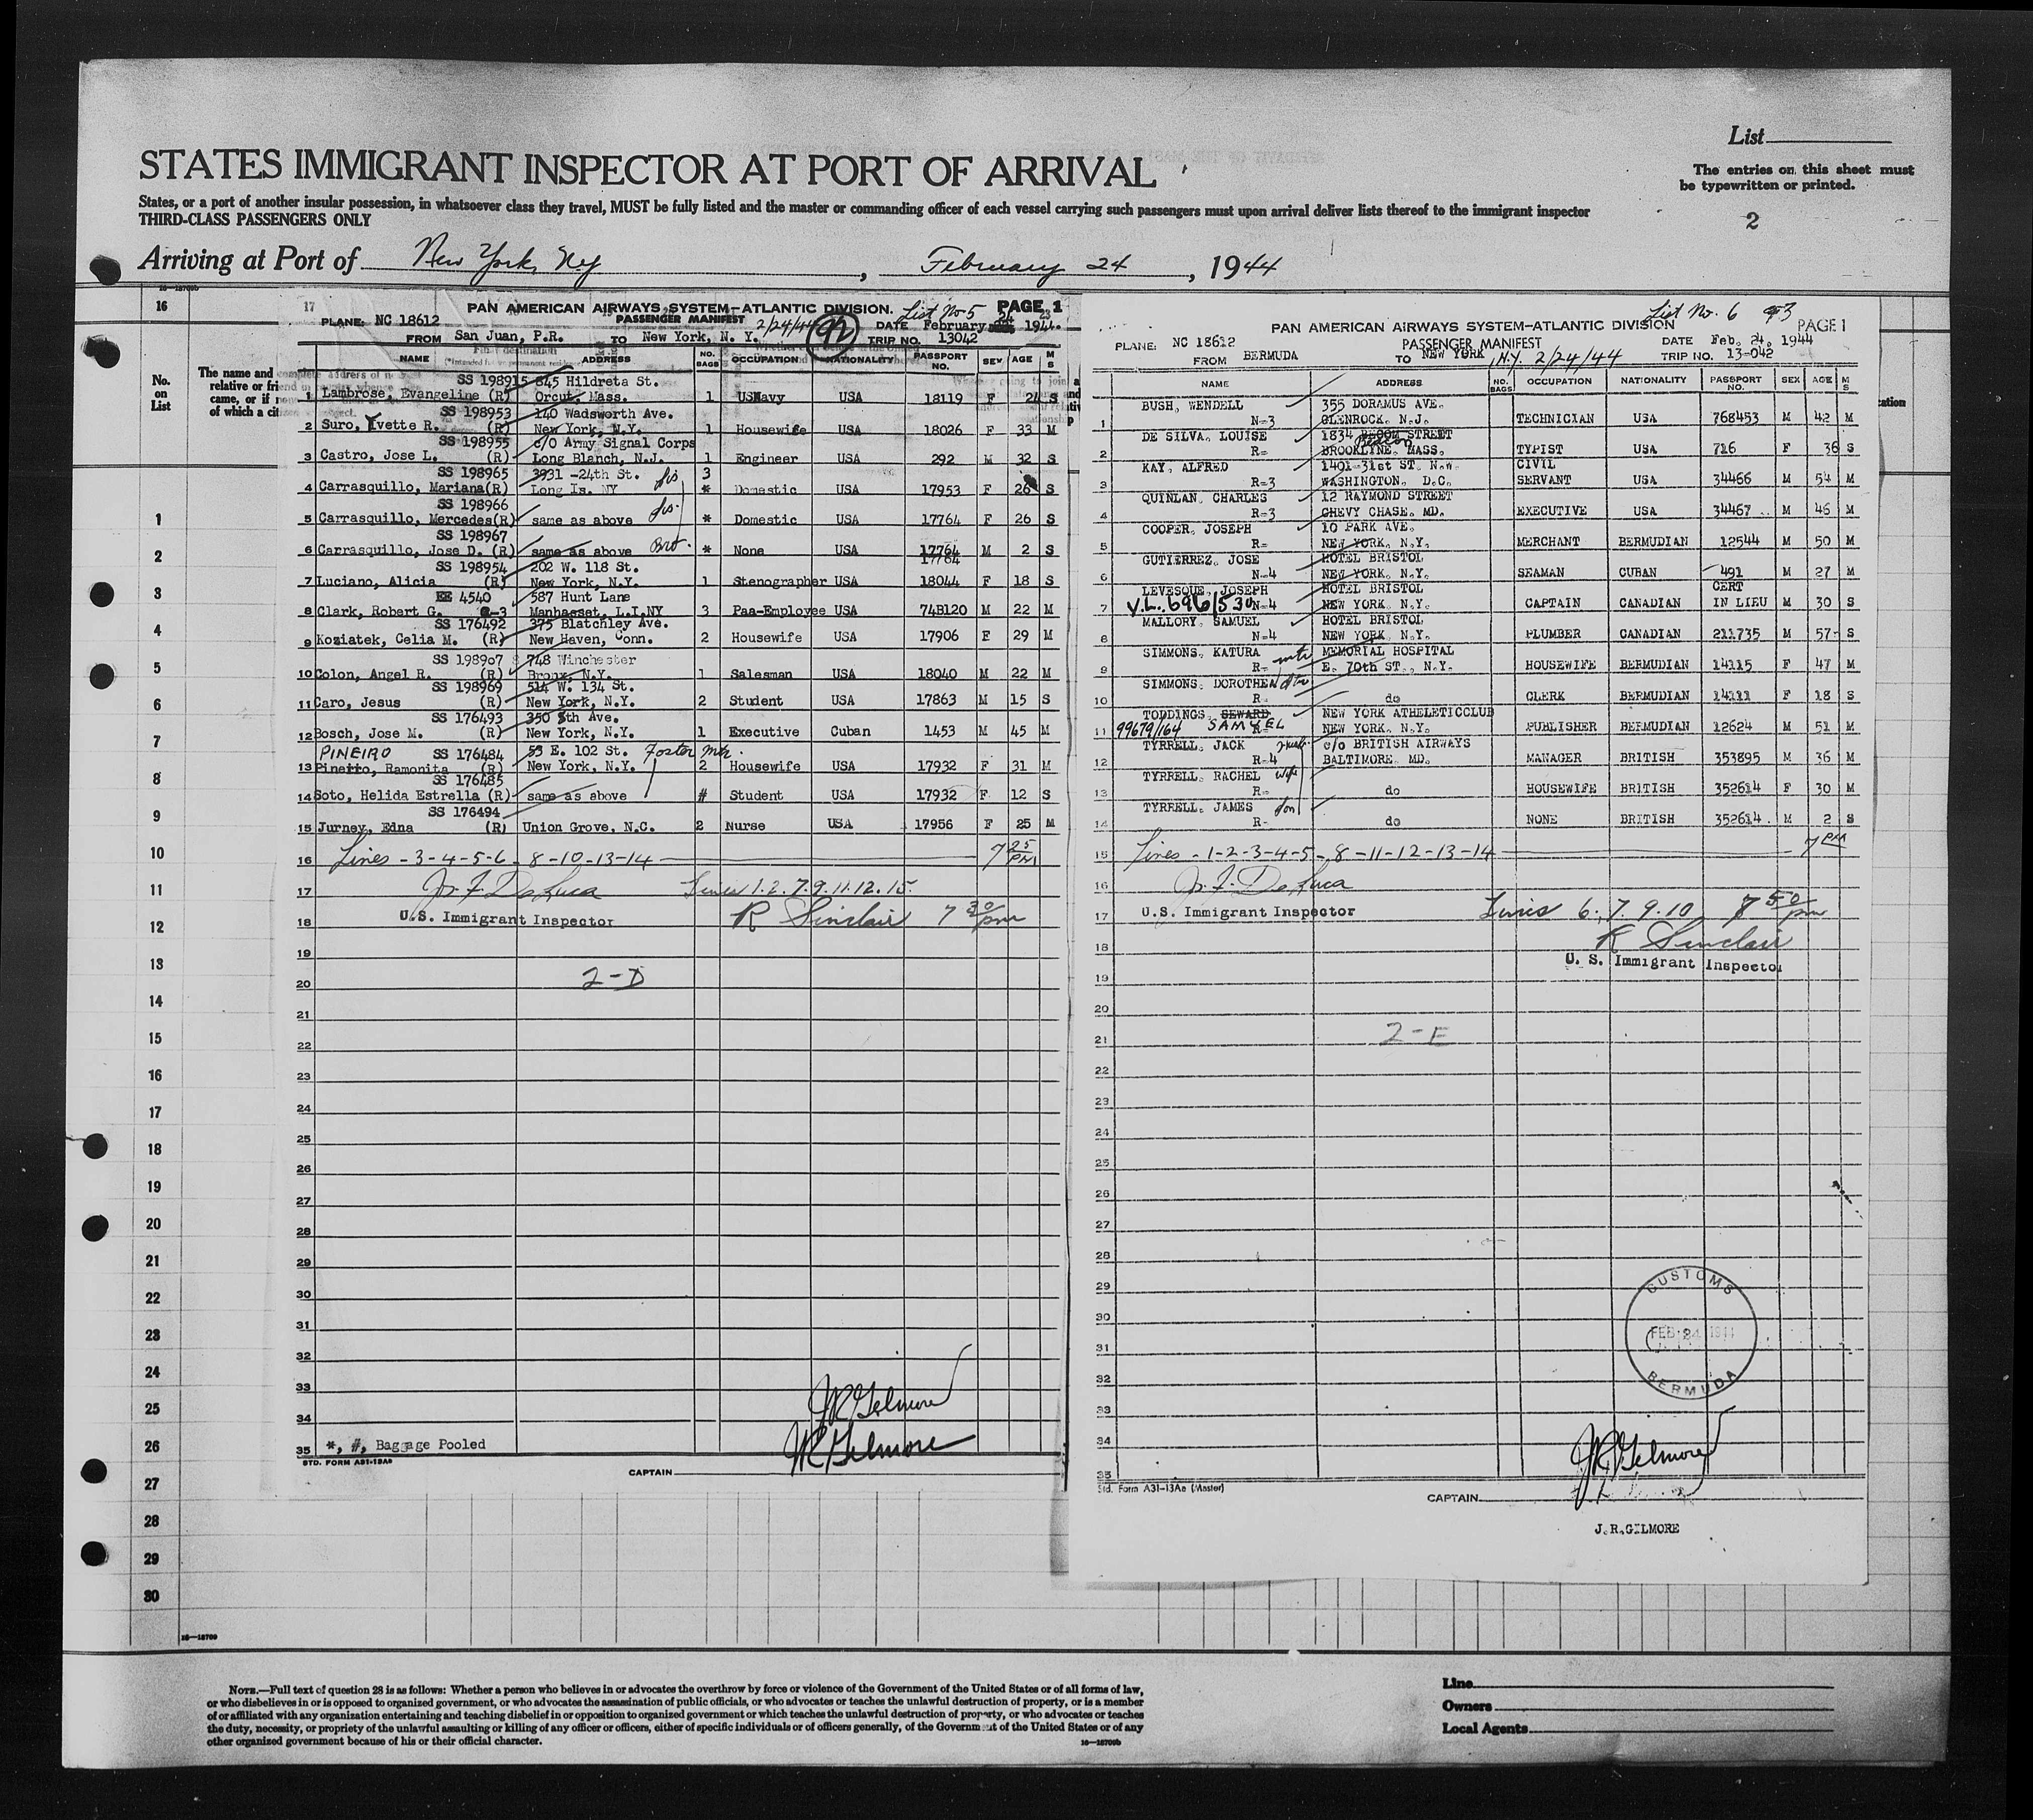 List
STATES IMMIGRANT INSPECTOR AT PORT OF ARRIVAL
The entries on this sheet must
be typewritten or printed.
States, or a port of another insular possession, in whatsoever class they travel, MUST be fully listed and the master or commanding officer of each vessel carrying such passengers must upon arrival deliver lists thereof to the immigrant inspector
THIRD-CLASS PASSENGERS ONLY
2
Arriving at Port of New York, NY, February 24, 1944
16—18709b
16
No.
on
List
The name and
relative or fri
came, or if n
of which a cit
1
2
3
4
5
6
7
8
9
10
11
12
13
14
15
16
17
18
19
20
21
22
23
24
25
26
27
28
29
30
16—18709
17 PAN AMERICAN AIRWAYS SYSTEM—ATLANTIC DIVISION. List No 5 PAGE 1
PLANE: NC 18612 PASSENGER MANIFEST 2/24/44 92 DATE February 24 1944.
FROM San Juan, P.R. TO New York, N. Y. TRIP NO. 13042
NAME ADDRESS NO. BAGS OCCUPATION NATIONALITY PASSPORT NO. SEX AGE M S
SS 198915 845 Hildreta St.
1 Lambrose, Evangeline (R) Orcut, Mass. 1 USNavy USA 18119 F 24 S
SS 198953 140 Wadsworth Ave.
2 Suro, Yvette R. (R) New York, N.Y. 1 Housewife USA 18026 F 33 M
SS 198955 c/o Army Signal Corps
3 Castro, Jose L. (R) Long Blanch, N.J. 1 Engineer USA 292 M 32 S
SS 198965 3931 -24th St. sis 3
4 Carrasquillo, Mariana(R) Long Is. NY * Domestic USA 17953 F 26 S
SS 198966
5 Carrasquillo, Mercedes(R) same as above sis. * Domestic USA 17764 F 26 S
SS 198967
6 Carrasquillo, Jose D. (R) same as above Bro. * None USA 17764 M 2 S
SS 198954 202 W. 118 St. 17764
7 Luciano, Alicia (R) New York, N.Y. 1 Stenographer USA 18044 F 18 S
EE 4540 587 Hunt Lane
8 Clark, Robert G. -3 Manhasset, L.I.NY 3 Paa-Employee USA 74B120 M 22 M
SS 176492 375 Blatchley Ave.
9 Koziatek, Celia M. (R) New Haven, Conn. 2 Housewife USA 17906 F 29 M
SS 198907 748 Winchester
10 Colon, Angel R. (R) Bronx, N.Y. 1 Salesman USA 18040 M 22 M
SS 198969 514 W. 134 St.
11 Caro, Jesus (R) New York, N.Y. 2 Student USA 17863 M 15 S
SS 176493 350 5th Ave.
12 Bosch, Jose M. (R) New York, N.Y. 1 Executive Cuban 1453 M 45 M
PINEIRO SS 176484 53 E. 102 St. Foster Mtr.
13 Ramonita (R) New York, N.Y. 2 Housewife USA 17932 F 31 M
SS 176485
14 Soto, Helida Estrella (R) same as above # Student USA 17932 F 12 S
SS 176494
15 Jurney, Edna (R) Union Grove, N.C. 2 Nurse USA 17956 F 25 M
16 Lines - 3-4-5-6 - 8-10-13-14 7 25 PM
17 J. F. DeLuca Lines 1.2.7.9.11.12.15.
18 U.S. Immigrant Inspector R Sinclair 7 30 pm
19
20 2-D
21
22
23
24
25
26
27
28
29
30
31
32
33 JR Gilmore
34
35 *, #, Baggage Pooled JR Gilmore
STD. FORM A31-13Aa
CAPTAIN
List No. 6 93
PAN AMERICAN AIRWAYS SYSTEM—ATLANTIC DIVISION PAGE 1
PLANE: NC 18612 PASSENGER MANIFEST DATE Feb. 24, 1944
FROM BERMUDA TO NEW YORK, N.Y. 2/24/44 TRIP NO. 13-042
NAME ADDRESS NO. BAGS OCCUPATION NATIONALITY PASSPORT NO. SEX AGE M S
BUSH, WENDELL 355 DORAMUS AVE.
1 N-3 GLENROCK, N.J. TECHNICIAN USA 768453 M 42 M
DE SILVA, LOUISE 1834 STREET Beacon
2 R- BROOKLYNE, MASS. TYPIST USA 716 F 36 S
KAY, ALFRED 1401-31st ST. N.W. CIVIL
3 R-3 WASHINGTON, D.C. SERVANT USA 34466 M 54 M
QUINLAN, CHARLES 12 RAYMOND STREET
4 R-3 CHEVY CHASE, MD. EXECUTIVE USA 34467 M 46 M
COOPER, JOSEPH 10 PARK AVE.
5 R- NEW YORK, N.Y. MERCHANT BERMUDIAN 12544 M 50 M
GUTIERREZ, JOSE HOTEL BRISTOL
6 N-4 NEW YORK, N.Y. SEAMAN CUBAN 491 M 27 M
LEVESQUE, JOSEPH HOTEL BRISTOL CERT
7 V.L. 696/530 N-4 NEW YORK, N.Y. CAPTAIN CANADIAN IN LIEU M 30 S
MALLORY, SAMUEL HOTEL BRISTOL
8 N-4 NEW YORK, N.Y. PLUMBER CANADIAN 211735 M 57 S
SIMMONS, KATURA mtr MEMORIAL HOSPITAL
9 R- E. 70th ST., N.Y. HOUSEWIFE BERMUDIAN 14115 F 47 M
SIMMONS, DOROTHEA dtr
10 R- do CLERK BERMUDIAN 14111 F 18 S
TODDINGS, SEWARD NEW YORK ATHELETICCLUB
11 99679/164 SAMUEL R- NEW YORK, N.Y. PUBLISHER BERMUDIAN 12624 M 51 M
TYRRELL, JACK c/o BRITISH AIRWAYS
12 R-4 BALTIMORE, MD. MANAGER BRITISH 353895 M 36 M
TYRRELL, RACHEL wife
13 R- do HOUSEWIFE BRITISH 352614 F 30 M
TYRRELL, JAMES son
14 R- do NONE BRITISH 352614 M 2 S
15 Lines - 1-2-3-4-5 - 8-11-12-13-14 7 PM
16 J. F. DeLuca
17 U.S. Immigrant Inspector Lines 6. 7. 9. 10 7 50 pm
18 R Sinclair
19 U. S. Immigrant Inspector
20
21 2-E
22
23
24
25
26
27
28
29
30
31
32
33
34
35
CUSTOMS
FEB 24 1944
BERMUDA
JR Gilmore
Std. Form A31-13Aa (Master)
CAPTAIN
J.R.GILMORE
NOTE.—Full text of question 28 is as follows: Whether a person who believes in or advocates the overthrow by force or violence of the Government of the United States or of all forms of law,
or who disbelieves in or is opposed to organized government, or who advocates the assassination of public officials, or who advocates or teaches the unlawful destruction of property, or is a member
of or affiliated with any organization entertaining and teaching disbelief in or opposition to organized government or which teaches the unlawful destruction of property, or who advocates or teaches
the duty, necessity, or propriety of the unlawful assaulting or killing of any officer or officers, either of specific individuals or of officers generally, of the Government of the United States or of any
other organized government because of his or their official character.
16—18709b
Line
Owners
Local Agents